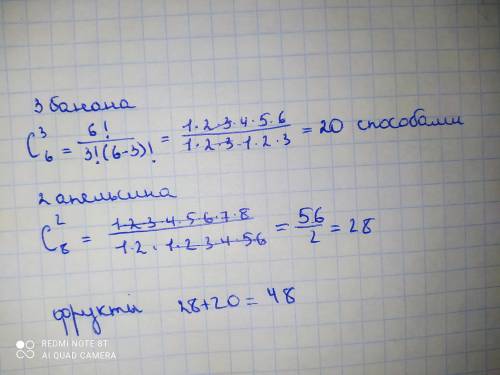 3 банана
C₆³ = 6!/3!(6-3)! = 1·2·3·4·5·6/1·2·3·1·2·3 = 20 способами
2 апельсина
C₈² = 1·2·3·4·5·6·7·8/1·2·1·2·3·4·56 = 56/2 = 28
фрукты 28+20=48
REDMI NOTE 8T
AI QUAD CAMERA